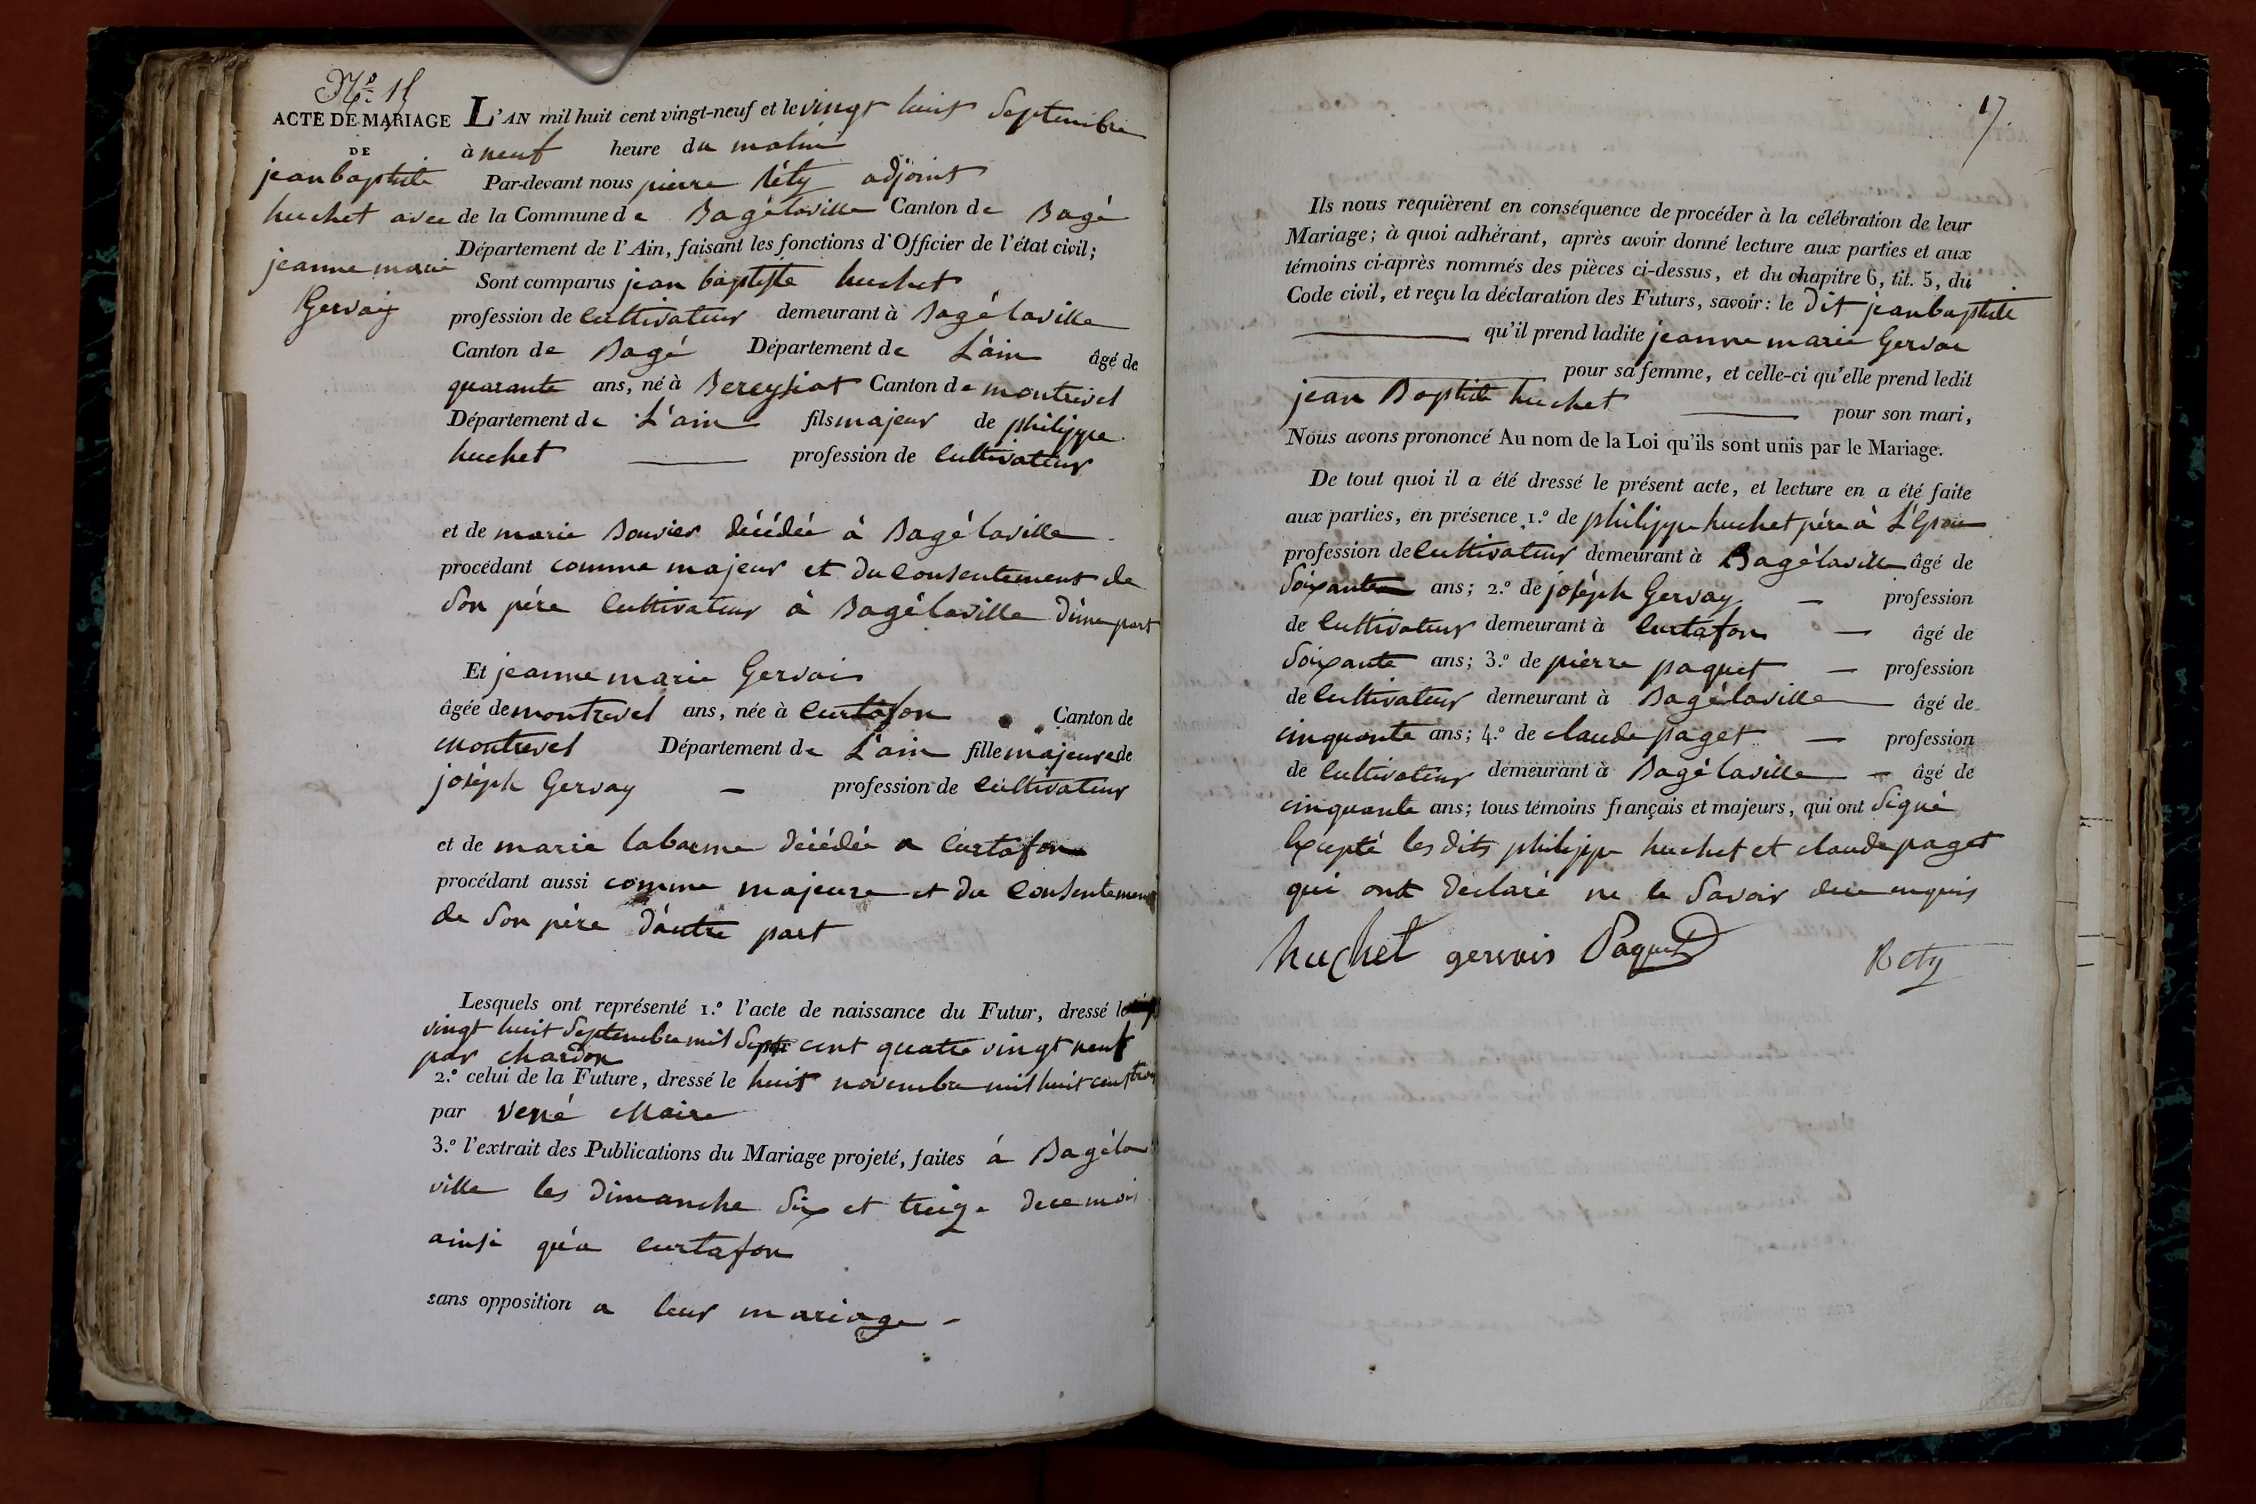 N.o 15
ACTE DE MARIAGE
DE
jean baptiste
huchet avec
jeanne marie
Gervay
L'AN mil huit cent vingt-neuf et le vingt huit Septembre
à neuf heure du matin
Par-devant nous pierre Réty adjoint
de la Commune de Bagélaville Canton de Bagé
Département de l'Ain, faisant les fonctions d'Officier de l'état civil;
Sont comparus jean baptiste huchet
profession de cultivateur demeurant à Bagélaville
Canton de Bagé Département de L'ain âgé de
quarante ans, né à Bereysiat Canton de montrevel
Département de L'ain fils majeur de philippe
huchet profession de cultivateur
et de marie Bouvier décédée à Bagélaville
procédant comme majeur et du consentement de
Son père cultivateur à Bagélaville d'une part
Et jeanne marie Gervais
âgée de montrevel ans, née à curtafon Canton de
montrevel Département de L'ain fille majeure de
joseph Gervay profession de cultivateur
et de marie labarme décédée a curtafon
procédant aussi comme majeure et du consentement
de Son père d'autre part
Lesquels ont représenté 1.o l'acte de naissance du Futur, dressé le
vingt huit Septembre mil Sept cent quatre vingt neuf
par chardon
2.o celui de la Future, dressé le huit novembre mil huit cent trois
par vené Maire
3.o l'extrait des Publications du Mariage projeté, faites à Bagéla
ville les dimanche Six et treize de ce mois
ainsi qu'a curtafon
sans opposition a leur mariage -
17.
Ils nous requièrent en conséquence de procéder à la célébration de leur
Mariage; à quoi adhérant, après avoir donné lecture aux parties et aux
témoins ci-après nommés des pièces ci-dessus, et du chapitre 6, tit. 5, du
Code civil, et reçu la déclaration des Futurs, savoir: le dit jean baptiste
qu'il prend ladite jeanne marie Gervae
pour sa femme, et celle-ci qu'elle prend ledit
jean Baptiste huchet pour son mari,
Nous avons prononcé Au nom de la Loi qu'ils sont unis par le Mariage.
De tout quoi il a été dressé le présent acte, et lecture en a été faite
aux parties, en présence 1.o de philippe huchet père à L'Epou
profession de cultivateur demeurant à Bagélaville âgé de
Soixante ans; 2.o de joséph Gervay profession
de cultivateur demeurant à curtafon âgé de
Soixante ans; 3.o de pierre paquet profession
de cultivateur demeurant à Bagélaville âgé de
cinquante ans; 4.o de claude paget profession
de cultivateur demeurant à Bagélaville âgé de
cinquante ans; tous témoins français et majeurs, qui ont Signé
Excepté les dits philippe huchet et claude paget
qui ont déclaré ne le Savoir de ce enquis
huchet gervais Paquet Rety